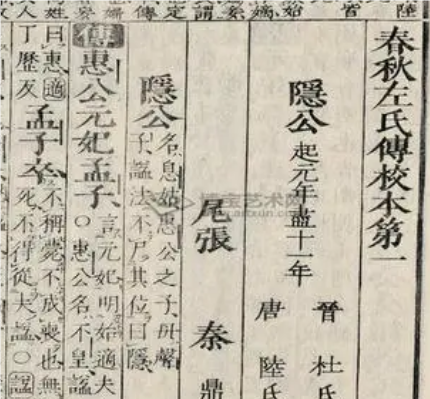 春秋左氏傳校本第一
隱公起元年盡十一年
晉杜氏
唐陸氏
尾張秦鼎
隱公
名息姑惠公之子母聲
子謚法不尸其位曰隱
傳惠公元妃孟子
言元妃明始適夫
○惠公名不皇謚
曰惠適
丁歷反
孟子卒
不稱薨不成喪也無
死不得從夫謚○謚